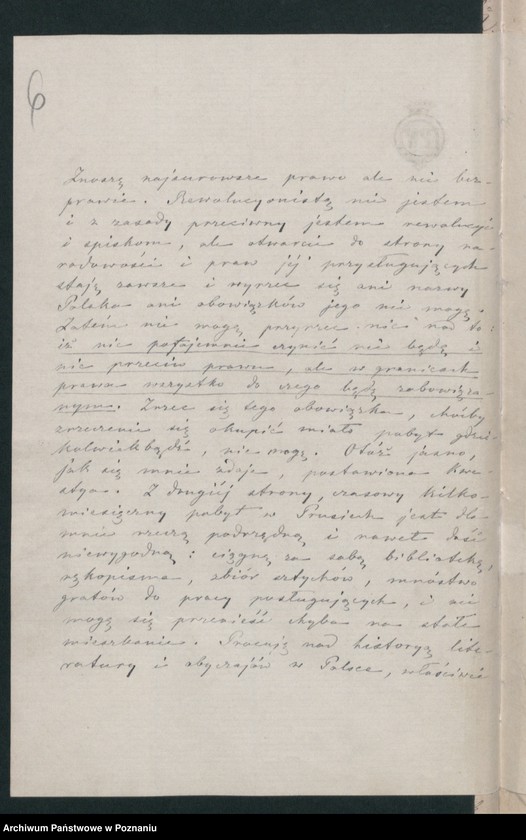 6
Znoszę najsurowsze prawo ale nie bez-
prawie. Rewolucyonistą nie jestem
i z zasady przeciwny jestem rewolucyi
i spiskom, ale otwarcie do strony na-
rodowości i praw jej przysługujących
staję zawsze i wyrzec się ani nazwy
Polaka ani obowiązków jego nie mogę.
Zatem nie mogę przyrzec nic nad to:
iż nic potajemnie czynić nie będę i
nic przeciw prawu, ale w granicach
prawa wszystko do czego będę zobowiąza-
nym. Zrzec się tego obowiązku, choćby
zrzeczenie się okupić miało pobyt gdzie-
kolwiekbądź, nie mogę. Otóż jasno,
jak się mnie zdaje, postawiona kwe-
stya. Z drugiéj strony, czasowy kilko-
miesięczny pobyt w Prusiech jest dla
mnie rzeczą podrzędną i nawet dość
niewygodną: ciągnę za sobą bibliotekę,
rękopisma, zbiór sztychów, mnóstwo
gratów do pracy posługujących, i nie
mogę się przenieść chyba na stałe
mieszkanie. Pracuję nad historyą lite-
ratury i obyczajów w Polsce, właściwie
Archiwum Państwowe w Poznaniu